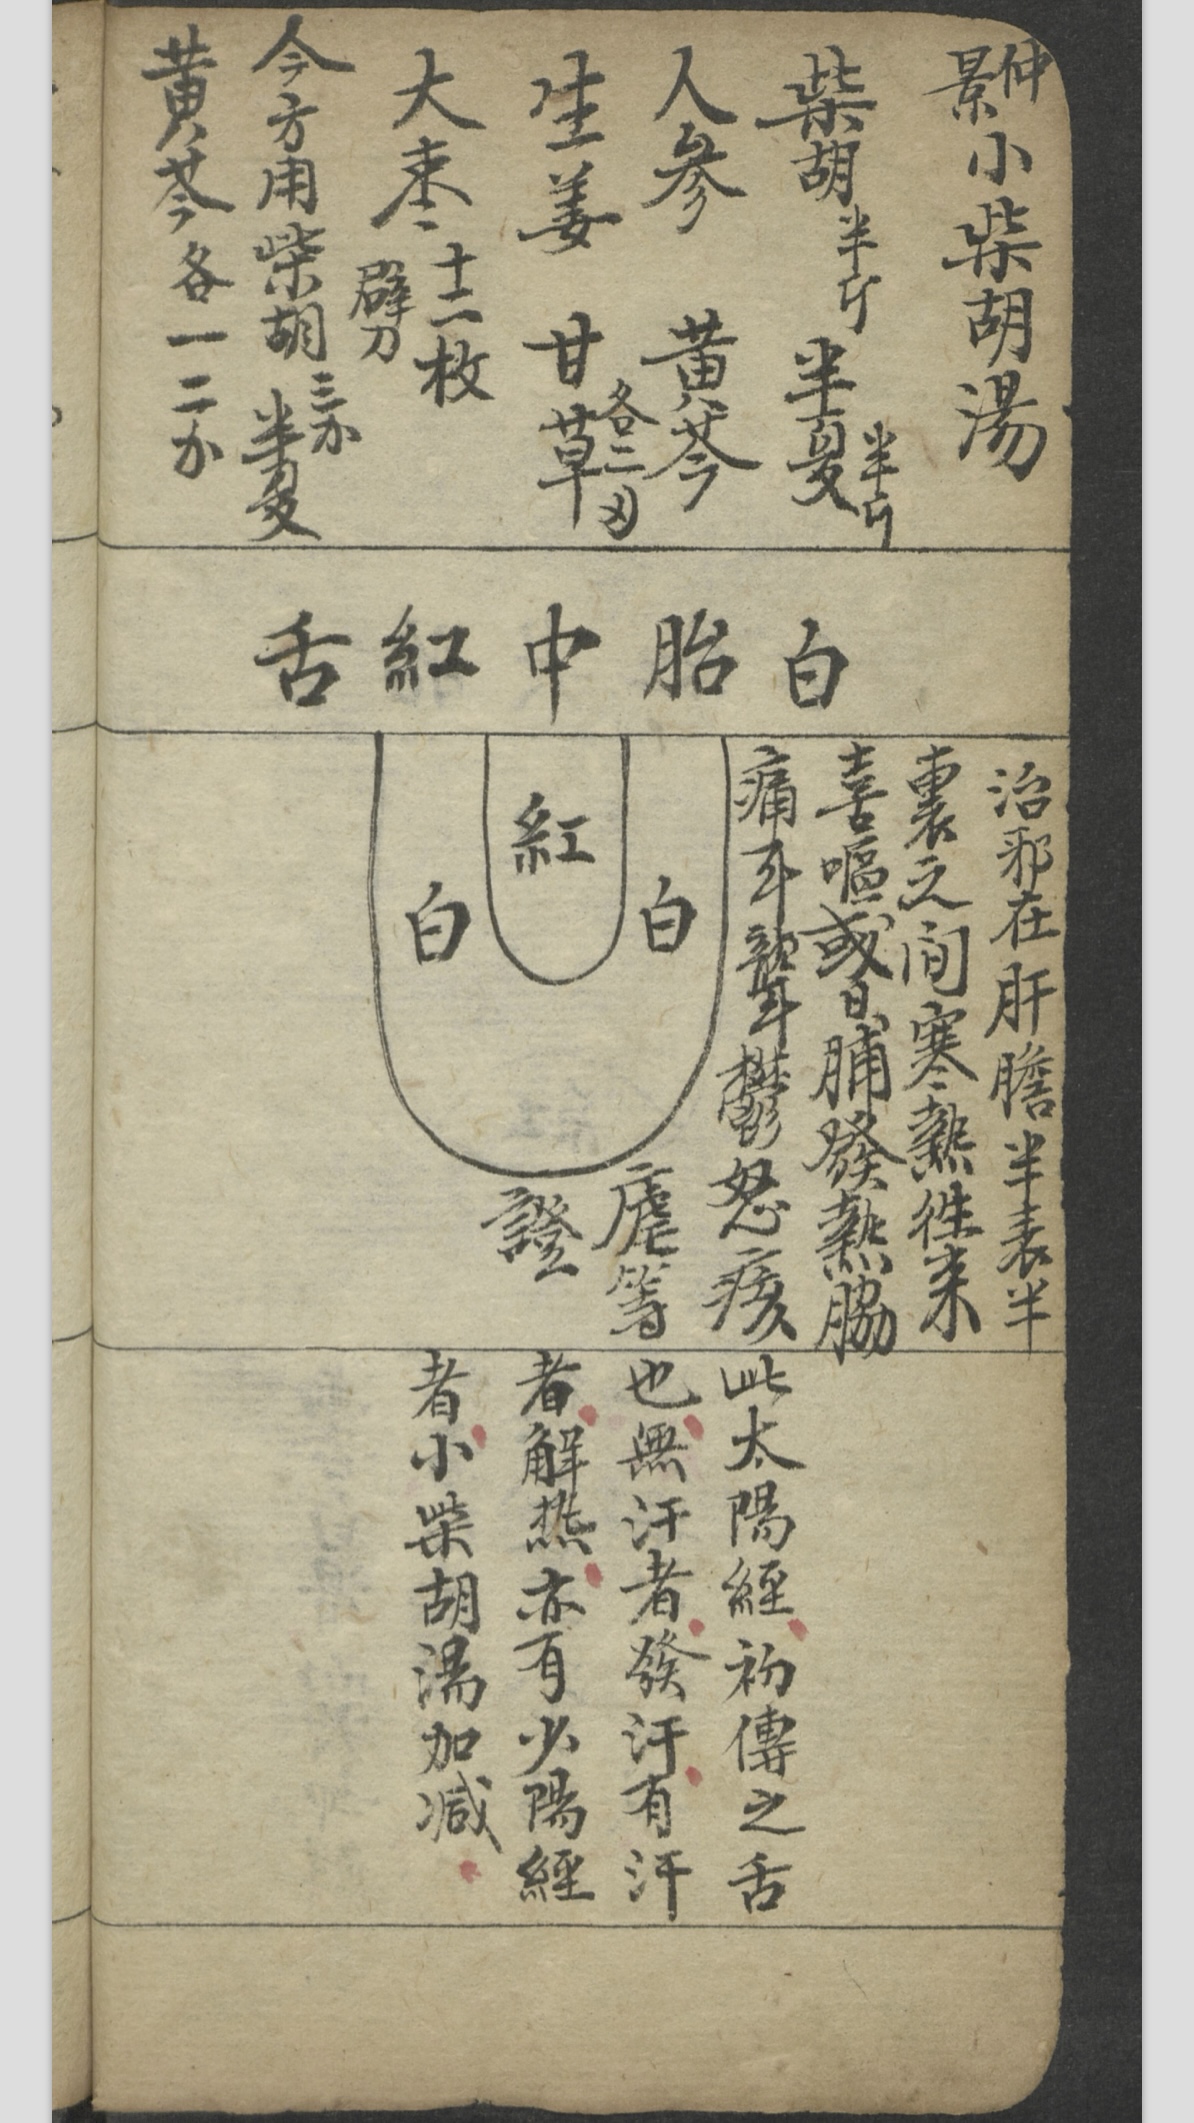 仲景小柴胡湯
柴胡半斤 半夏半斤
人參 黃芩
生姜 甘草各二刄
大棗十二枚 劈
今方用柴胡三 半夏
黃芩各一二
白胎中紅舌
治邪在肝膽半表半
裏之间寒熱徃来
喜嘔或日晡發熱脇
痛耳聾鬱怒痎
瘧等
證
白 紅 白
此太陽經初傳之舌
也無汗者發汗有汗
者解热亦有少陽經
者小柴胡湯加减